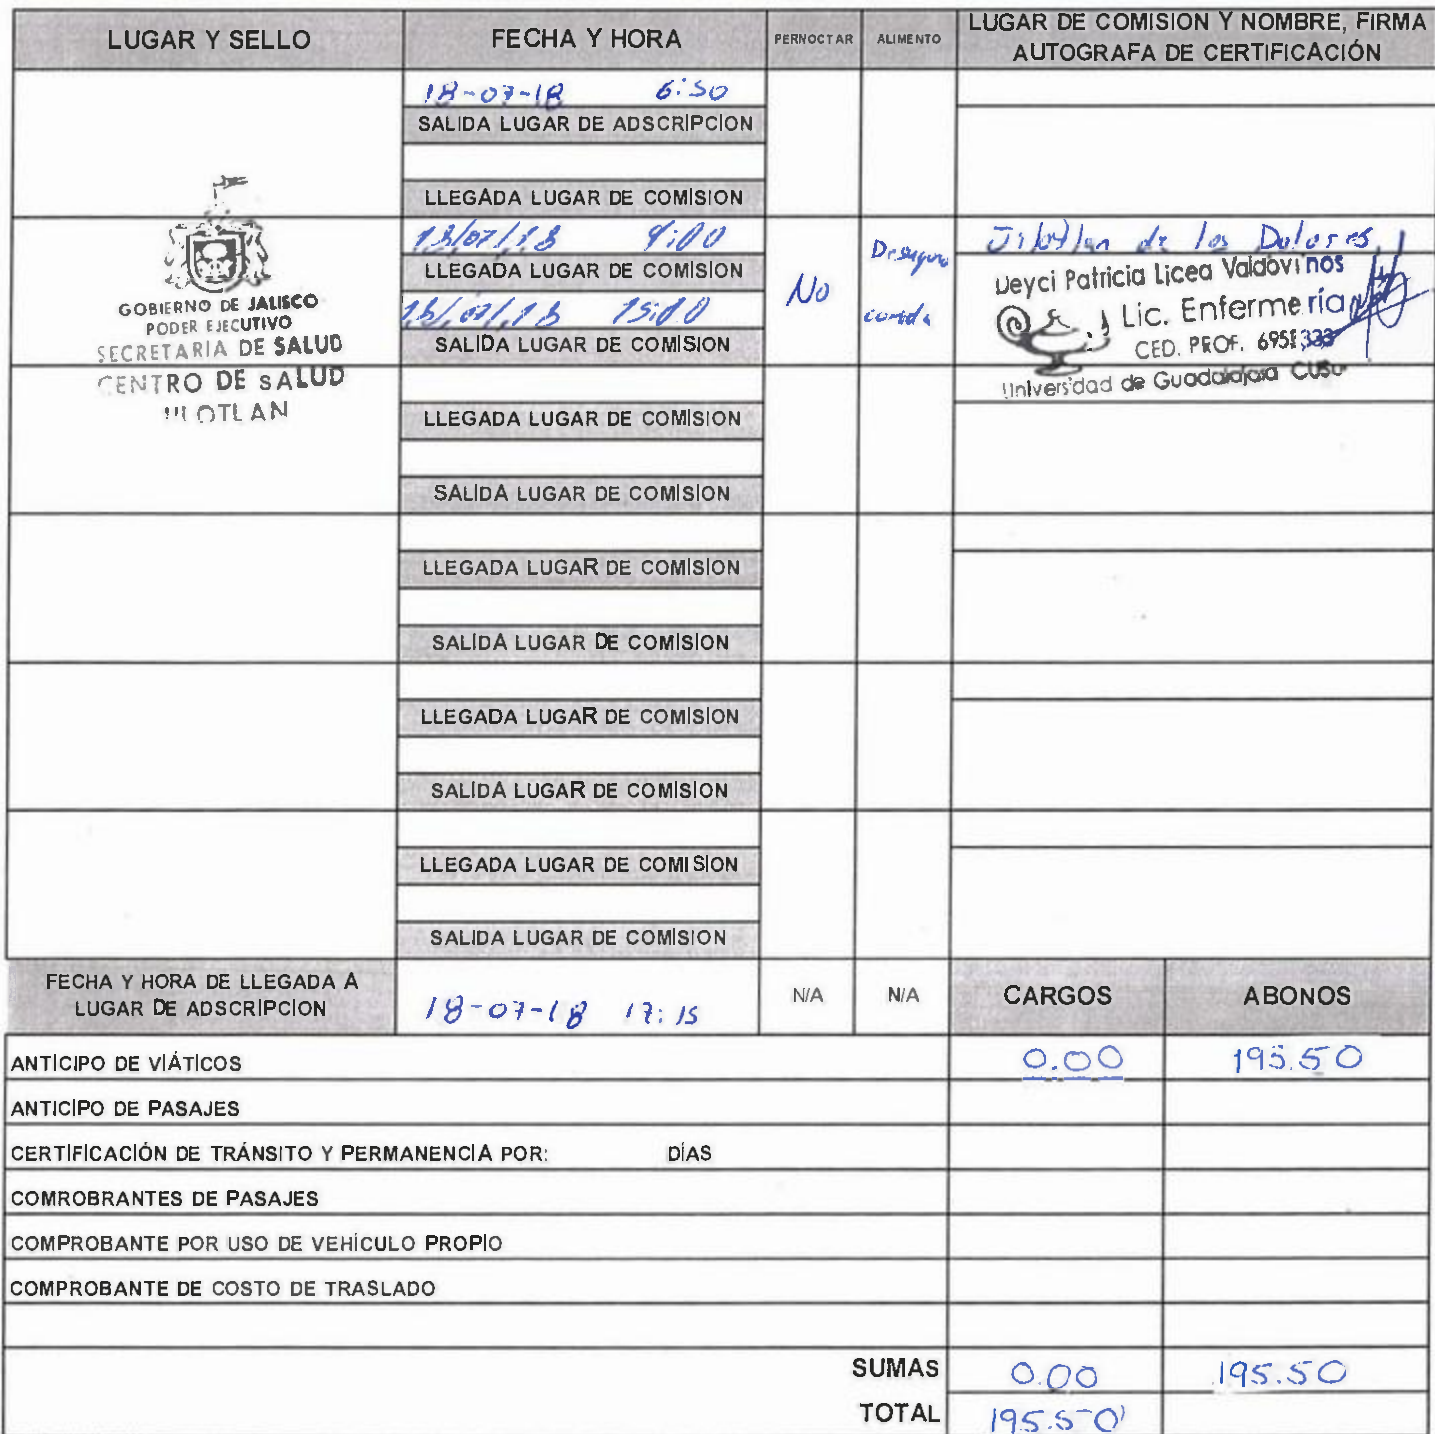 LUGAR Y SELLO
FECHA Y HORA
PERNOCTAR
ALIMENTO
LUGAR DE COMISION Y NOMBRE, FIRMA
AUTOGRAFA DE CERTIFICACIÓN
18-07-18 6:50
SALIDA LUGAR DE ADSCRIPCION
LLEGADA LUGAR DE COMISION
18/07/18 9:00
LLEGADA LUGAR DE COMISION
18/07/18 15:00
SALIDA LUGAR DE COMISION
No
comida
GOBIERNO DE JALISCO
PODER EJECUTIVO
SECRETARIA DE SALUD
CENTRO DE SALUD
Jilotlan de los Dolores
Deyci Patricia Licea Valdovinos
Lic. Enfermería
CED. PROF. 6951333
Universidad de Guadalajara
LLEGADA LUGAR DE COMISION
SALIDA LUGAR DE COMISION
LLEGADA LUGAR DE COMISION
SALIDA LUGAR DE COMISION
LLEGADA LUGAR DE COMISION
SALIDA LUGAR DE COMISION
LLEGADA LUGAR DE COMISION
SALIDA LUGAR DE COMISION
FECHA Y HORA DE LLEGADA A
LUGAR DE ADSCRIPCION
18-07-18 17:15
N/A
N/A
CARGOS
ABONOS
ANTICIPO DE VIÁTICOS 0.00 195.50
ANTICIPO DE PASAJES
CERTIFICACIÓN DE TRÁNSITO Y PERMANENCIA POR: DÍAS
COMROBRANTES DE PASAJES
COMPROBANTE POR USO DE VEHÍCULO PROPIO
COMPROBANTE DE COSTO DE TRASLADO
SUMAS 0.00 195.50
TOTAL 195.50